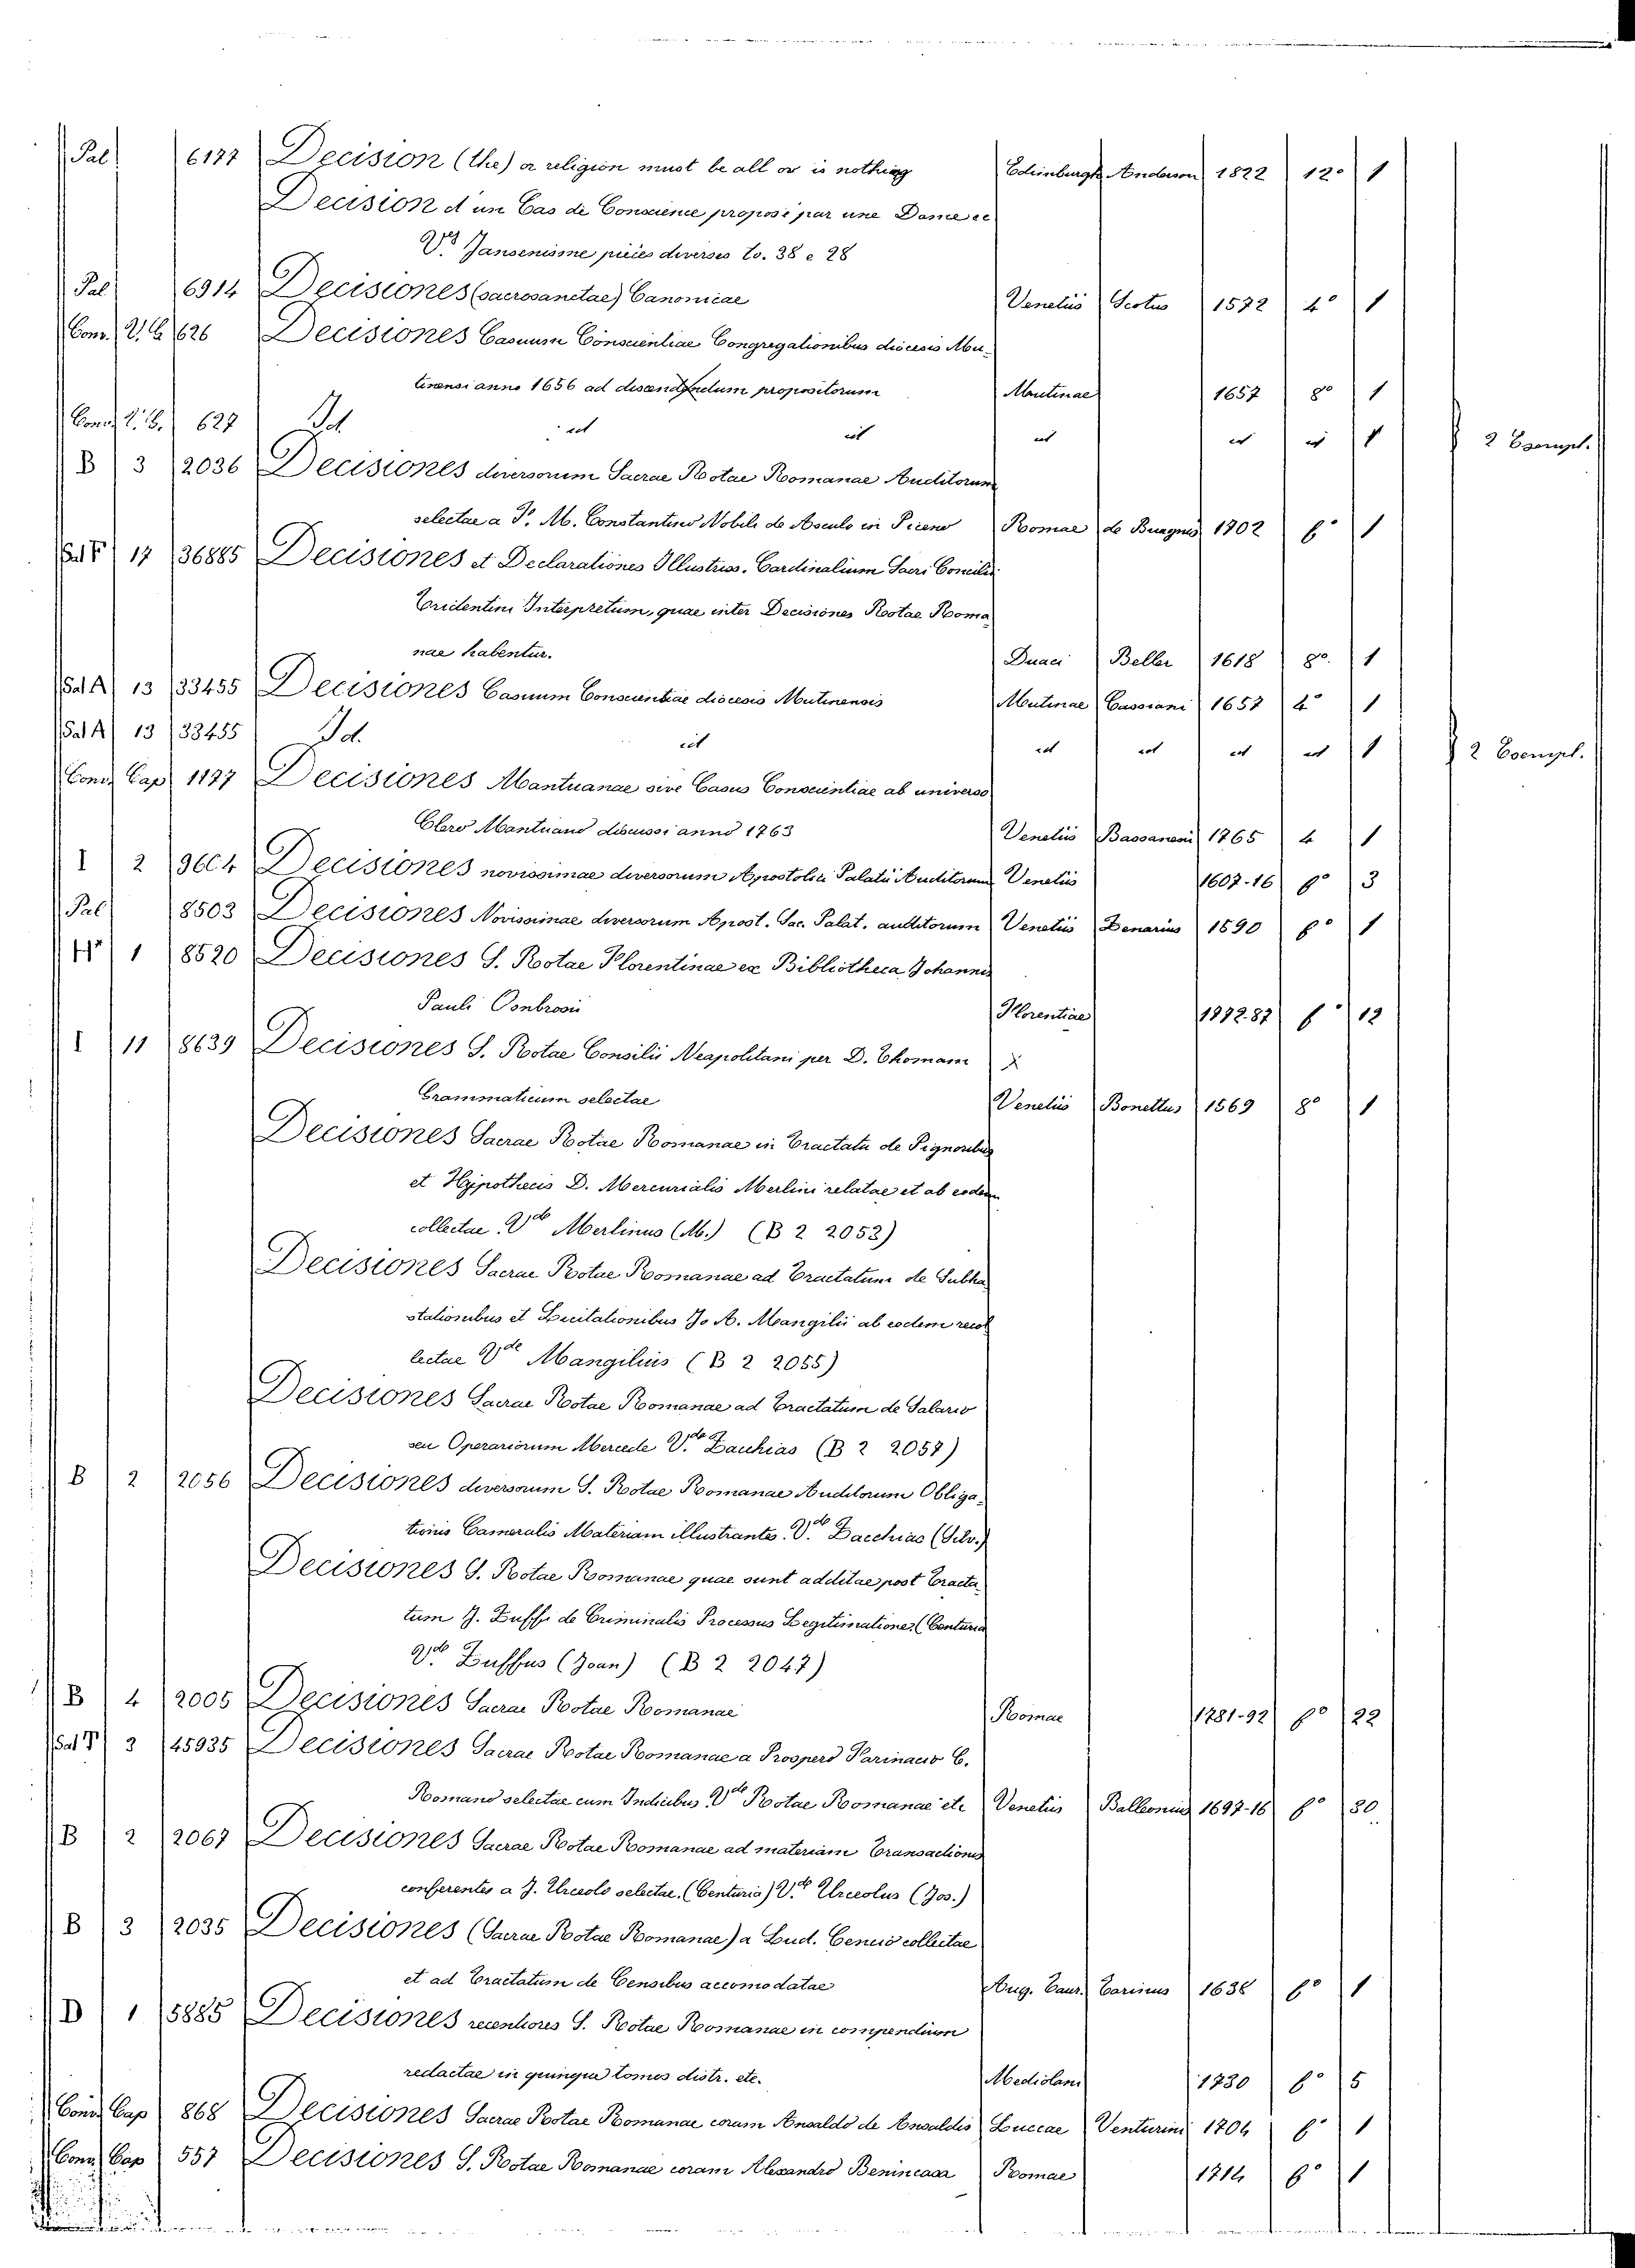 Pal 6177 Decision (the) or religion must be all or is nothing Edimburgh Anderson 1822 12° 1
Decision d'un Cas de Conscience proposé par une Dame ec
V.d Jansenisme pièces diverses to. 38 e 28
Pal 6914 Decisiones (sacrosanctae) Canonicae Venetiis Scotus 1572 4° 1
Conv. V. E. 626 Decisiones Casuum Conscientiae Congregationibus diocesis Mu-
tinensi anno 1656 ad discendendum propositorum Mutinae 1657 8° 1
Conv. V. E. 627 Id. id id id id id 1 2 Esempl.
B 3 2036 Decisiones diversorum Sacrae Rotae Romanae Auditorum
selectae a P. M. Constantino Nobile de Asculo in Piceno Romae de Buagnis 1702 f° 1
Sal F 17 36885 Decisiones et Declarationes Illustriss. Cardinalium Sacri Concilii
Tridentini Interpretum, quae inter Decisiones Rotae Roma
nae habentur. Duaci Beller 1618 8°. 1
Sal A 13 33455 Decisiones Casuum Conscientiae diocesis Mutinensis Mutinae Cassiani 1657 4° 1
Sal A 13 33455 Id. id id id id id 1 2 Esempl.
Conv. Cap 1177 Decisiones Mantuanae sive Casus Conscientiae ab universo
Clero Mantuano discussi anno 1763 Venetiis Bassanesi 1765 4 1
I 2 9604 Decisiones novissimae diversorum Apostolici Palatii Auditorum Venetiis 1607-16 f° 3
Pal 8503 Decisiones Novissimae diversorum Apost. Sac. Palat. auditorum Venetiis Zenarius 1590 f° 1
1 8520 Decisiones S. Rotae Florentinae ex Bibliotheca Johannis
Pauli Ombrosii Florentiae f° 12
I 11 8639 Decisiones S. Rotae Consilii Neapolitani per D. Thomam X
Grammaticum selectae Venetiis Bonettus 1569 8° 1
Decisiones Sacrae Rotae Romanae in Tractatu de Pignoribus
et Hypothecis D. Mercurialis Merlini relatae et ab eodem
collectae. V.de Merlinus (M.) (B 2 2053)
Decisiones Sacrae Rotae Romanae ad Tractatum de Subha
stationibus et Licitationibus Jo A. Mangilii ab eodem recol
lectae V.de Mangilius (B 2 2055)
Decisiones Sacrae Rotae Romanae ad Tractatum de Salario
seu Operariorum Mercede V.de Zacchias (B 2 2057)
B 2 2056 Decisiones diversorum S. Rotae Romanae Auditorum Obliga-
tionis Cameralis Materiam illustrantes. V.de Zacchias (Silv.)
Decisiones S. Rotae Romanae quae sunt additae post Tracta-
tum J. Zuffi de Criminalis Processus Legitimatione. (Centuria
V.de Zuffus (Joan) (B 2 2047)
B 4 2005 Decisiones Sacrae Rotae Romanae Romae 1781-92 f° 22
Sal F 3 45935 Decisiones Sacrae Rotae Romanae a Prospero Farinacio C.
Romano selectae cum Indicibus V.de Rotae Romanae etc Venetiis Balleonius 1697-16 f° 30
B 2 2067 Decisiones Sacrae Rotae Romanae ad materiam Transactionis
conferentes a J. Urceolo selectae. (Centuria) V.de Urceolus (Jos.)
B 3 2035 Decisiones (Sacrae Rotae Romanae) a Lud. Cencio collectae
et ad Tractatum de Censibus accomodatae Aug. Taur. Tarinus 1638 f° 1
D 1 5885 Decisiones recentiores S. Rotae Romanae in compendium
redactae in quinque tomos distr. etc. Mediolani 1730 f° 5
Conv. Cap 868 Decisiones Sacrae Rotae Romanae coram Ansaldo de Ansaldis Luccae Venturini 1704 f° 1
Conv. Cap 557 Decisiones S. Rotae Romanae coram Alexandro Benincasa Romae 1714 f° 1